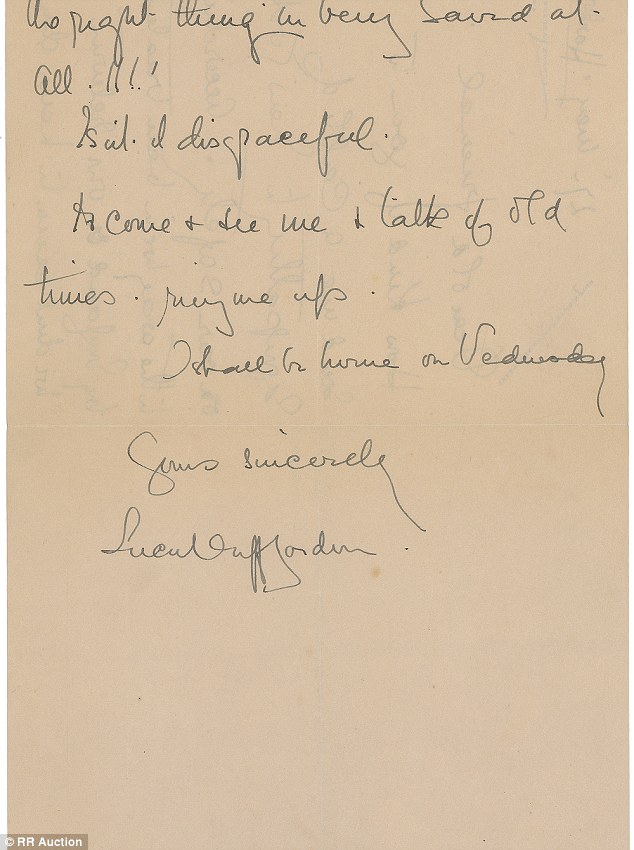 the right thing in being saved at-
all. !!!!
Isn't it disgraceful.
to come & see me & talk of old
times. ring me up.
I shall be home on Wednesday
Yours sincerely
Lucy Duff Gordon.
© RR Auction